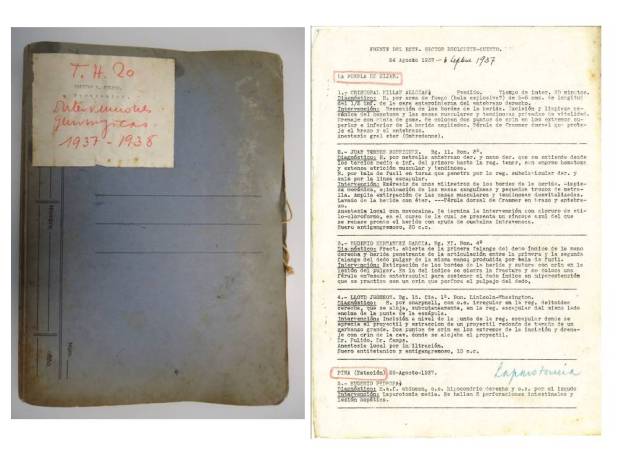 T. H. 20
Intervenciones
Quirúrgicas
1937 - 1938
FRENTE DEL ESTE. SECTOR BELCHITE-QUINTO.
24 Agosto 1937 - 6 Sepbre 1937
LA PUEBLA DE HIJAR.
1.- CRISTOBAL VILLAR Tiempo de inter. 20 minutos.
Diagnóstico: H. por arma de fuego (bala explosiva?) de 5-6 cms. de longitud
del 1/3 inf. de la cara anterointerna del antebrazo derecho.
Intervención: Resección de los bordes de la herida. Excisión y limpieza
de las masas musculares y tendinosas privadas de vitalidad.
Drenaje con gasa. Se colocan dos puntos de crin en los extremos
superior e inferior de la herida ampliada. Férula de Cramer dorsal que
el brazo y el antebrazo.
Anestesia gral eter
2.- JUAN TORRES RODRIGUEZ. Bg. 11. Bon. 8º.
Diagnóstico: H. por metralla antebrazo der. y mano der. que se extiende desde
los tercios medio e inf. del primero hasta la reg. tenar, con enorme hematoma
y extensa atrición muscular y tendinosa.
H. por bala de fusil en torax que penetra por la reg. subclavicular der. y
sale por la linea escapular.
Intervención: Exéresis de unos milímetros de los bordes de la herida.
eliminación de las masas sanguíneas y pequeños trozos de
Amplia extirpación de las masas musculares y tendinosas desvitalizadas.
Lavado de la herida con éter. Férula dorsal de Cramer en brazo y
Anestesia local con novocaina. Se termina la intervención con cloruro de
en el curso de la cual se presenta un síncope azul del que
se repone pronto el herido con ayuda de cardiazol intravenoso.
Suero antigangrenoso, 20 c.c.
3.- EUGENIO HERNANDEZ GARCIA. Bg. XI. Bon. 4º
Diagnóstico: Fract. abierta de la primera falange del dedo índice de la mano
derecha y herida penetrante de la articulación entre la primera y la segunda
falange del dedo pulgar de la misma mano; producida por bala de fusil.
Intervención: Extirpación de los bordes de la herida y sutura con crin en la
lesión del pulgar. En la del índice se cierra la fractura y se coloca una
férula para sostener el dedo índice en hiperextensión
que se practica con un crin que perfora el pulpejo del dedo.
4.- LLOYD JOHNSON. Bg. 15. Cia. 1ª. Bon. Lincoln-Washington.
Diagnóstico: H. por shrapnell, con o.e. irregular en la reg. deltoidea
derecha, que se aloja, subcutáneamente, en la reg. escapular del mismo lado
encima de la punta de la escápula.
Intervención: Incisión a nivel de la punta de la reg. escapular donde se
aprecia el proyectil y extracción de un proyectil redondo de tamaño de un
garbanzo grande. Dos puntos de crin en los extremos de la incisión y
con crin de la cav. donde se alojaba el proyectil.
Dr. Pulido. Dr. Camps.
Anestesia local por infiltración.
Suero antitetánico y antigangrenoso, 10 c.c.
PINA (Estación) 26-Agosto-1937. Laparotomía
5.- EUGENIO
Diagnóstico: H.a.f. abdomen, o.e. hipocondrio derecho y o.s. por el mismo
Intervención: Laparotomía media. Se hallan 2 perforaciones intestinales y
lesión hepática.